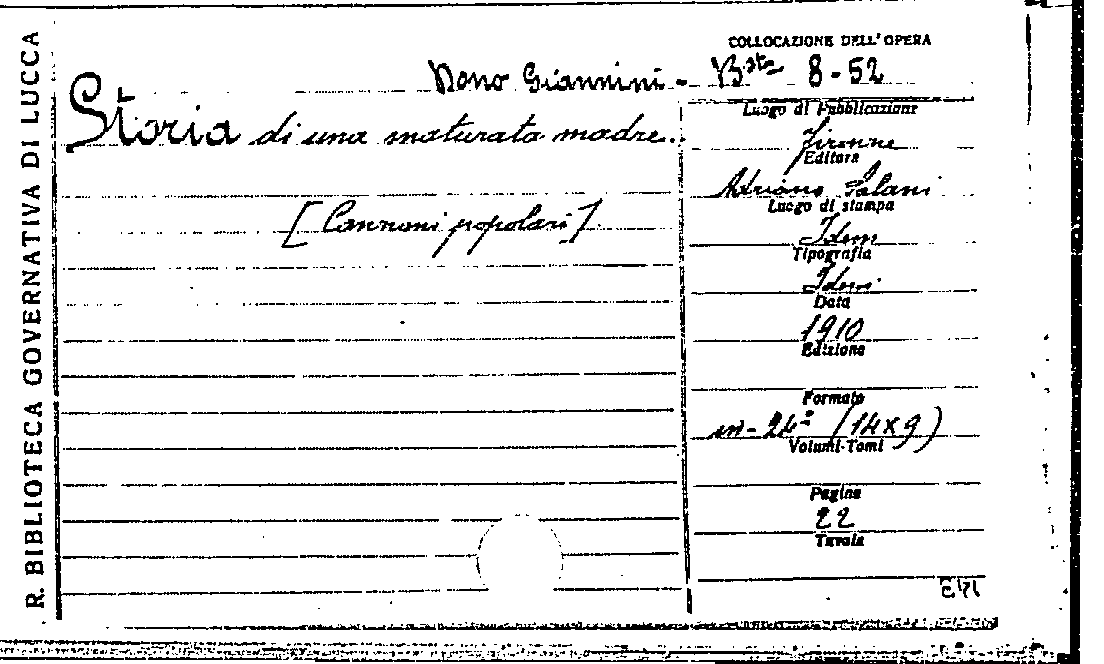 R. BIBLIOTECA GOVERNATIVA DI LUCCA
COLLOCAZIONE DELL'OPERA
Dono Giannini - B.sta 8-52
Storia di una snaturata madre..
[Canzoni popolari]
Luogo di Pubblicazione
Firenze
Editore
Adriano Salani
Luogo di stampa
Idem
Tipografia
Idem
Data
1910
Edizione
Formato
in-24° (14x9)
Volumi-Tomi
Pagine
22
Tavole